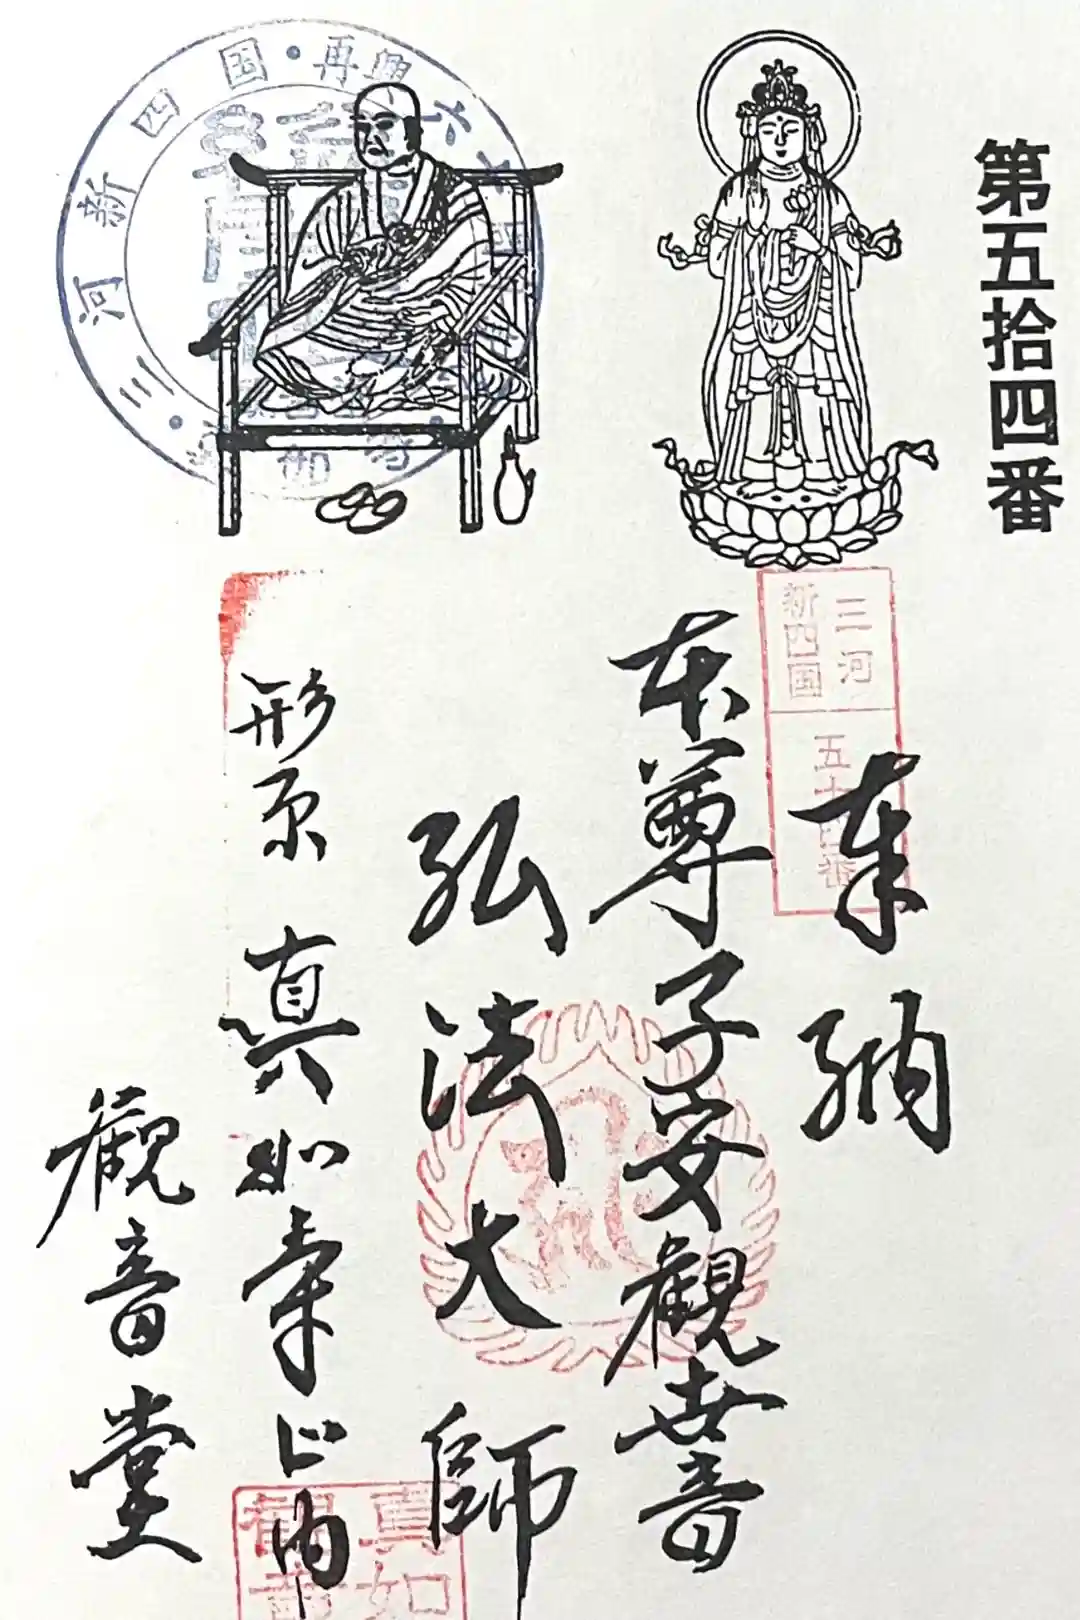 第五拾四番
三河
新四国
五十四番
奉納
本尊子安観世音
弘法大師
形原 真如寺内
観音堂
三河新四国・再興
真如
観音